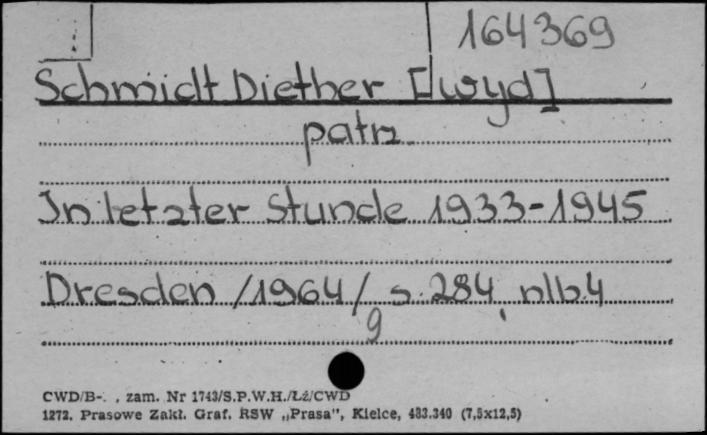 164369
Schmidt Diether [wyd]
patrz
In letzter Stunde 1933-1945
Dresden /1964/ s. 284, nlb.4
g
CWD/B-. , zam. Nr 1743/S.P.W.H./Łź/CWD
1272. Prasowe Zakł. Graf. RSW „Prasa”, Kielce, 483.340 (7,5x12,5)